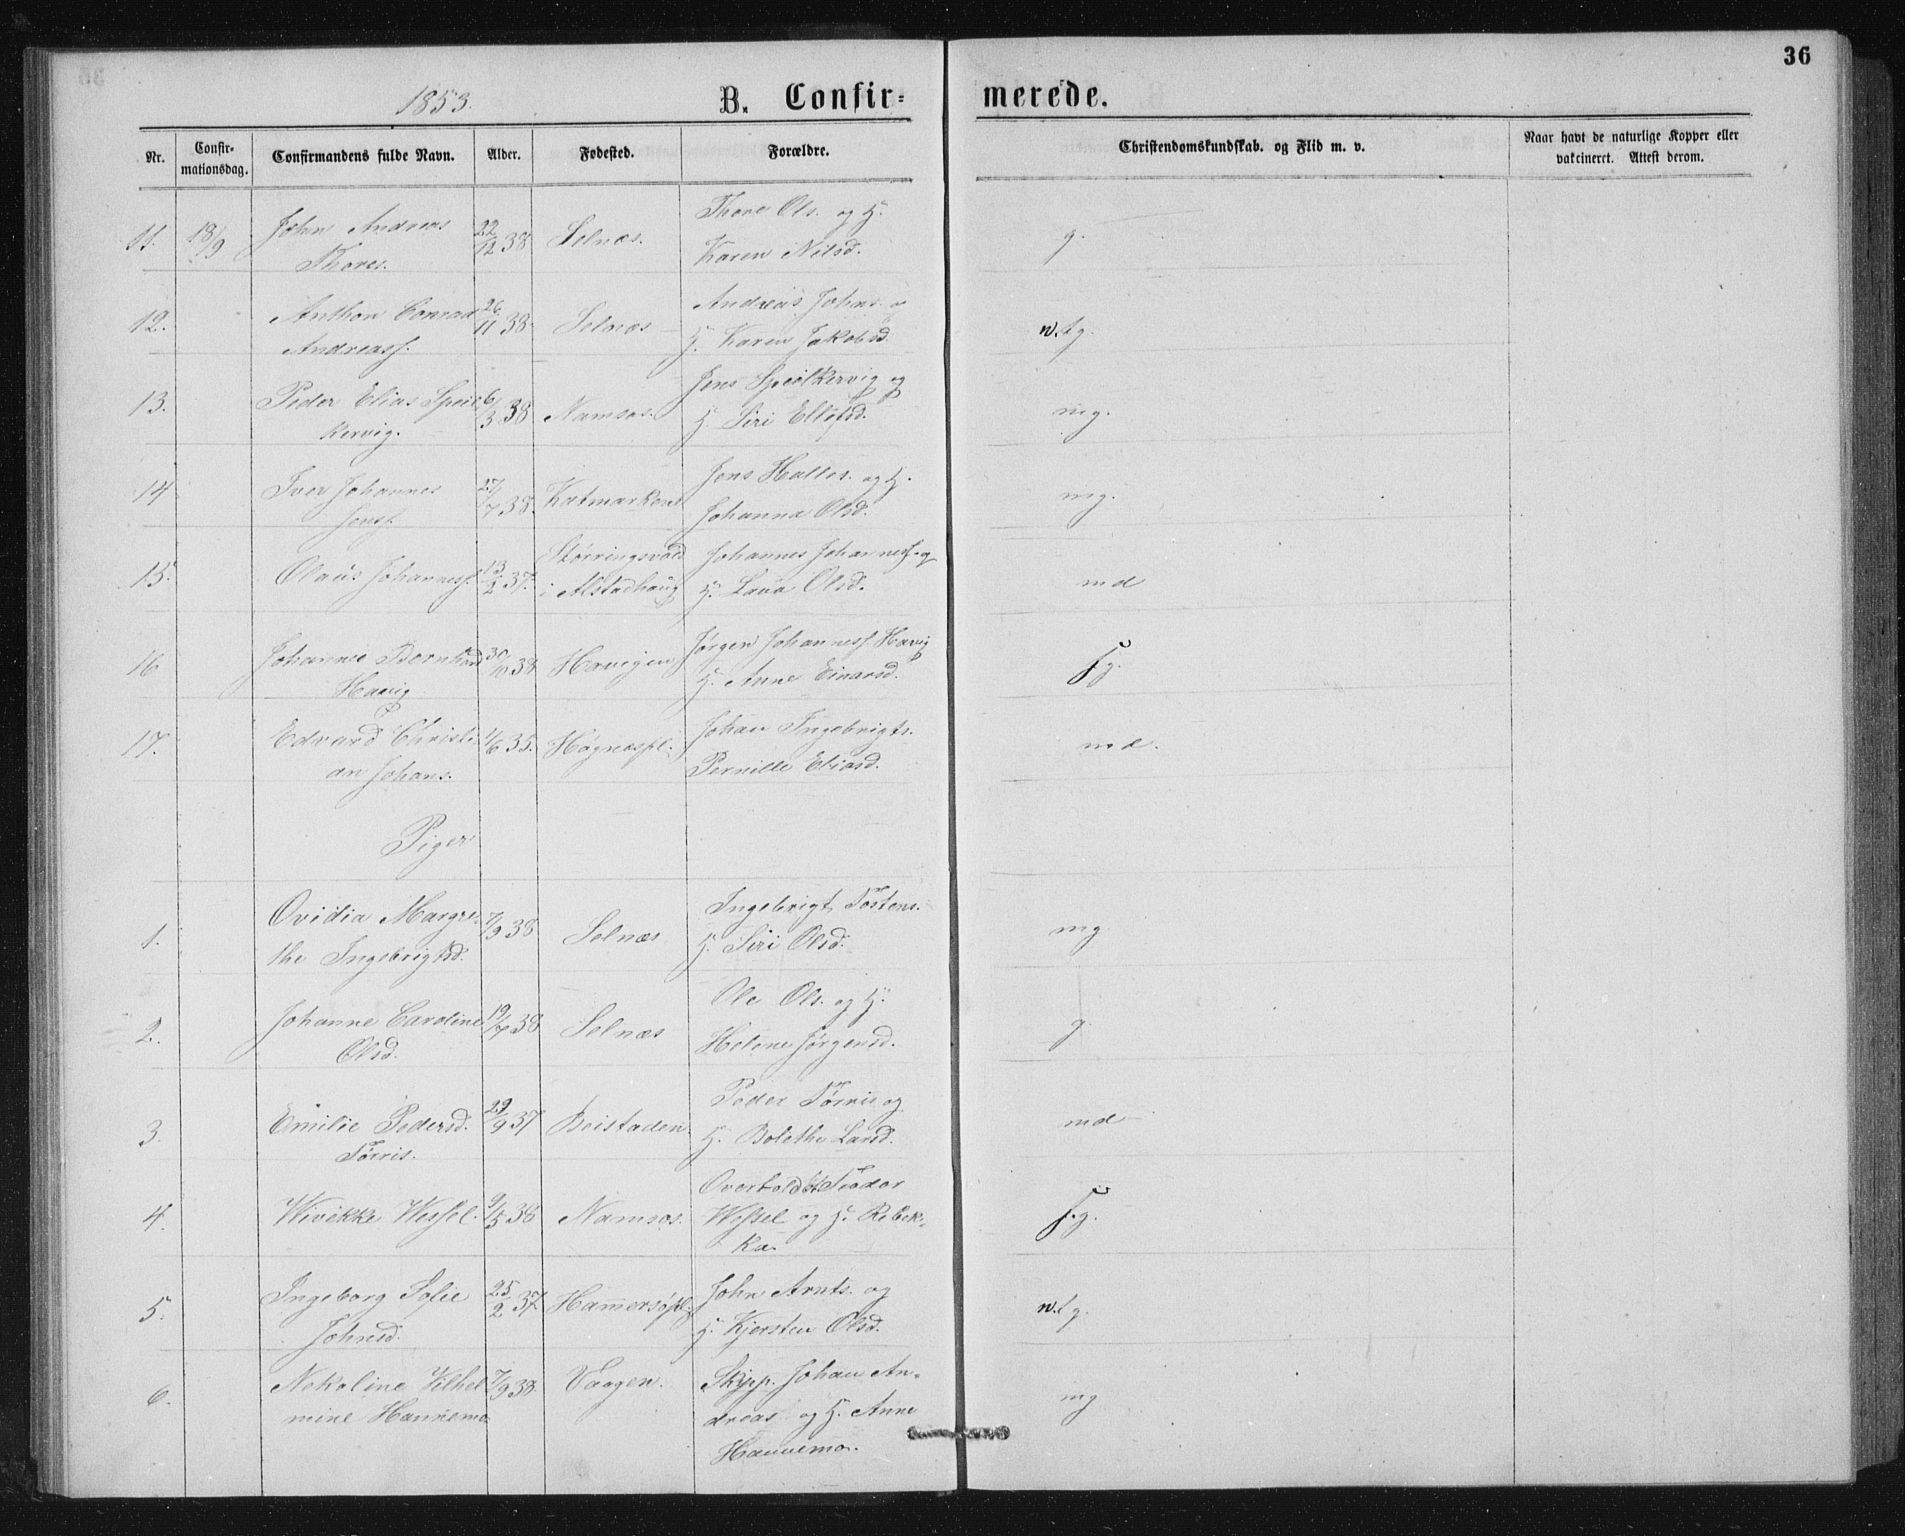 36
1853.
B. Confir-
merede.
Nr.
Confir-
mationsdag.
Confirmandens fulde Navn.
Alder.
Fødested.
Forældre.
Christendomskundskab. og Flid m. v.
Naar havt de naturlige Kopper eller
vakcineret. Attest derom.
11. 18/9 John Andreas 22/12 38 Selnæs. Thore Ols. og H. g.
Thores. Karen Nilsd.
12. Anthon Conrad 26/11 38 Selnæs Andreas Johns. og n.tg.
Andreass. H. Karen Jakobsd.
13. Peder Elias Speil 6/3 38 Namsos. Jens Speilkervig og mg.
kervig. H. Siri Ellefsd.
14 Iver Johannes 27/7 38. Jens Halles. og H. mg.
Jenss. Johanna Olsd.
15. Olaus Johanness. 13/2 37. Størringsvold Johannes Johanness. og md
i Alstadhaug H. Olsd.
16 Johannes Bernhard 30/10 38 Havigen Jørgen Johanness. Havig
Havig H. Anne Einarsd.
17. Edvard Christi 1/6 35. Høgnæspl. Johan Ingebrigts. md.
an Johans. Pernille Eliasd.
Piger
1. Ovidia Margre- 7/9 38 Selnæs Ingebrigt Tostens. mg
the Ingebrigtsd. H. Siri Olsd.
2. Johanne Caroline 19/7 38 Selnæs Ole Ols. og H. g.
Olsd. Helene Jørgensd.
3. Emilie Pedersd. 29/9 37 Beistaden. Peder Tørris og md
Tørris. H. Bolethe Larsd.
4. Wivekke Wessel. 9/5 38 Namsos. Teodor
Wessel og H. Rebek-
ka.
5. Ingeborg Sofie 25/2 37. Hammersøpl. John Arnts. og n.tg.
Johnsd. H. Kjersten Olsd.
6. Nekoline Vilhel 7/9 38. Vaagen. Skipp. Johan An- mg
mine Hannemo dreas og H. Anne
Hannemo.